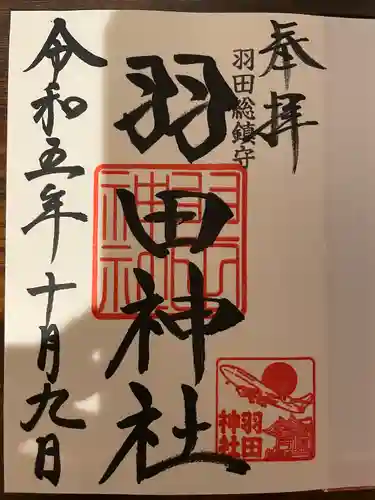 奉拝
羽田総鎮守
羽田神社
令和五年十月九日
羽田
神社